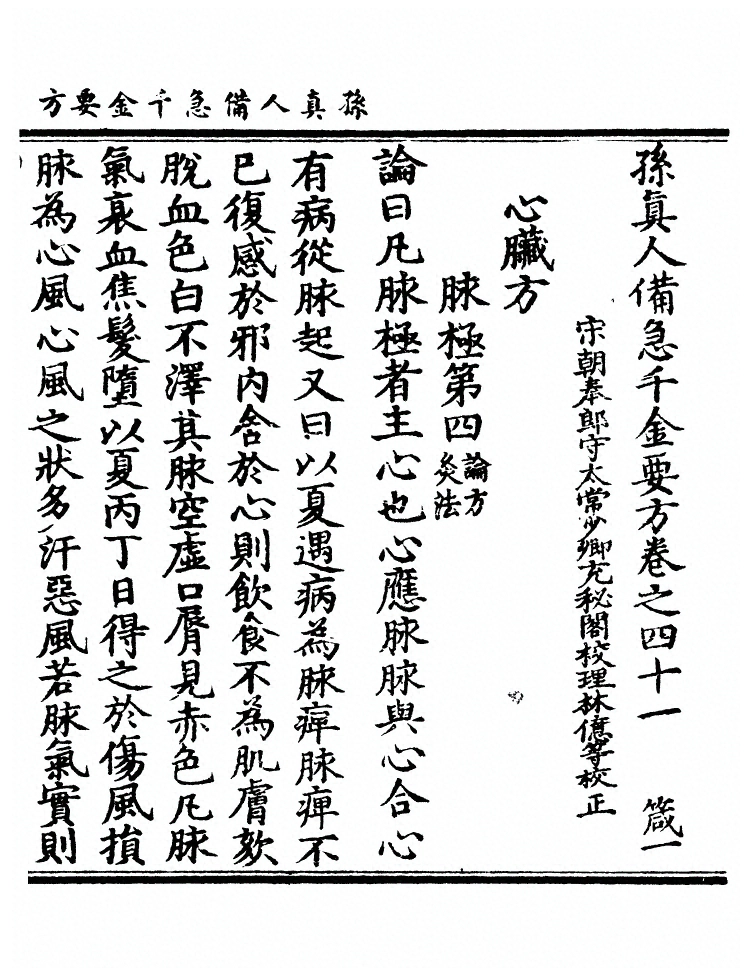 孫真人備急千金要方
孫眞人備急千金要方卷之四十一 箴一
宋朝奉郎守太常少卿充秘閣校理林億等校正
心臟方
脉極第四 論方 灸法
論曰凡脉極者主心也心應脉脉與心合心
有病從脉起又曰以夏遇病為脉痺脉痺不
已復感於邪內舍於心則飲食不為肌膚欬
脫血色白不澤其脉空虛口脣見赤色凡脉
氣衰血焦髮墮以夏丙丁日得之於傷風損
脉為心風心風之狀多汗惡風若脉氣實則